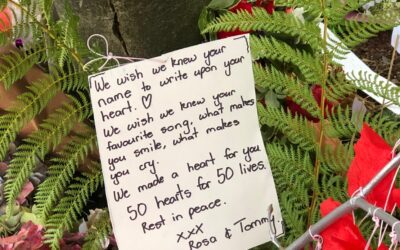 We wish we knew your
name to write upon your
heart. ♡
We wish we knew your
favourite song, what makes
you smile, what makes
you cry.
We made a heart for you
50 hearts for 50 lives.
Rest in peace.
xxx
Rosa & Tommy.